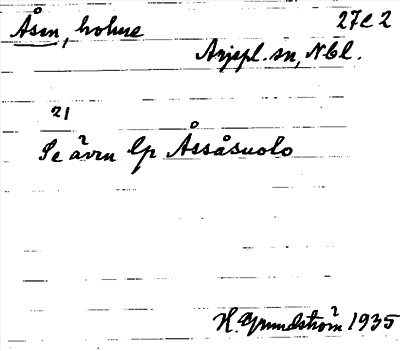 Åsen, holme 27C2
Arjepl. sn, Nbl.
21
Se även lp Åssåsuolo
H. Grundström 1935